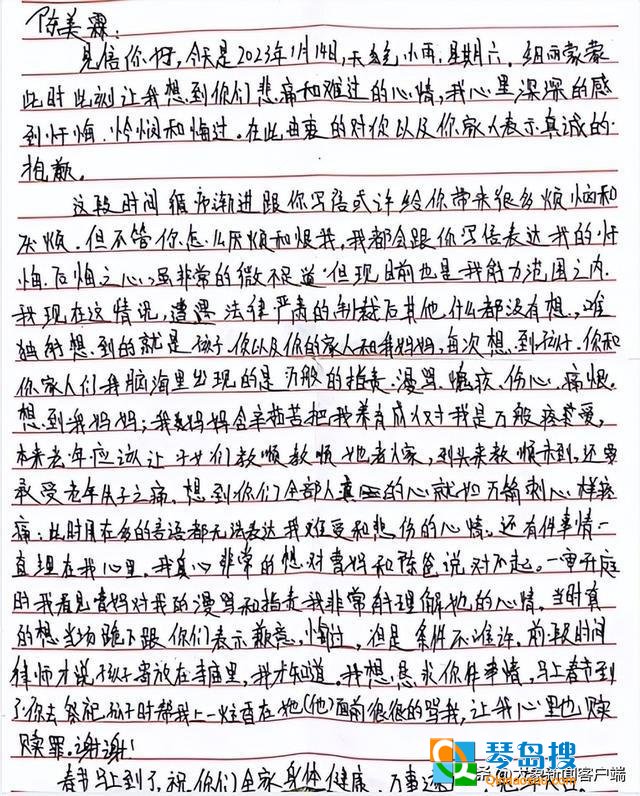 陈美霖:
见信你好,今天是2023年1月14日,天气小雨,星期六。细雨蒙蒙
此时此刻让我想到你们悲痛和难过的心情,我心里深深的感
到忏悔、怜悯和悔过。在此由衷的对你以及你家人表示真诚的
抱歉。
这段时间循序渐进跟你写信或许给你带来很多烦恼和
厌烦。但不管你怎么厌烦和恨我,我都会跟你写信表达我的忏
悔、后悔之心,虽非常的微不足道,但现目前也是我能力范围之内。
我现在这情况,遭遇法律严肃的制裁后其他什么都没有想,唯
独能想到的就是孩子、你以及你的家人和我妈妈,每次想到孩子、你和
你家人们我脑海里出现的是万般的指责、漫骂、伤心、痛恨。
想到我妈妈;我妈妈含辛茹苦把我养育成人对我是万般疼爱,
本来老年应该让子女们孝顺孝顺她老人家,到头来孝顺未到,还要
承受老年失子之痛。想到你们全部人真的心就如万箭刺心一样疼
痛;此时用在多的言语都无法表达我难受和悲伤的心情。还有件事情一
直埋在我心里,我真心非常的想对曹妈和陈爸说对不起。一审开庭
时我看见曹妈对我的漫骂和指责我非常能理解她的心情。当时真
的想当场跪下跟你们表示歉意、悔过,但是条件不准许。前段时间
律师才说孩子寄放在寺庙里,我才知道,我想恳求你件事情,马上春节到
了你去祭祀孩子时帮我上一炷香在她(他)面前狠狠的骂我,让我心里也赎
赎罪。谢谢!
春节马上到了,祝你们全家身体健康、万事
琴岛搜
Qindaosou.com
@大象新闻客户端